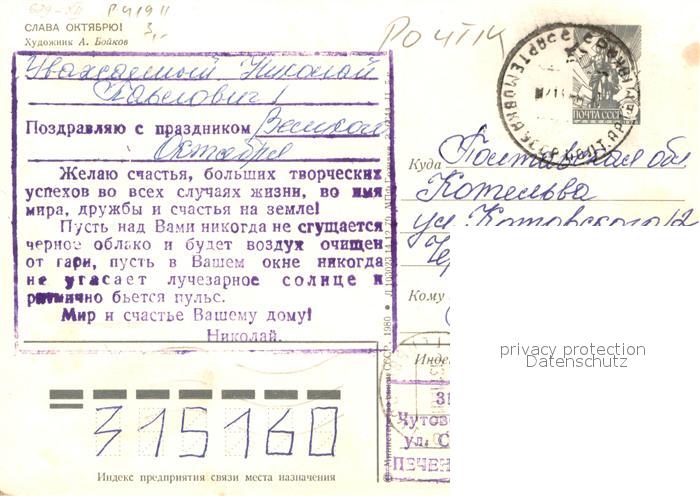 СЛАВА ОКТЯБРЮ!
Художник А. Бойков
Уважаемый Николай
Павлович!
Поздравляю с праздником Великого
Октября
Желаю счастья, больших творческих
успехов во всех случаях жизни, во имя
мира, дружбы и счастья на земле!
Пусть над Вами никогда не сгущается
черное облако и будет воздух очищен
от гари, пусть в Вашем окне никогда
не угасает лучезарное солнце и
ритмично бьется пульс.
Мир и счастье Вашему дому!
Николай.
315160
Индекс предприятия связи места назначения
Министерство связи СССР, 1980
ПОЧТА СССР
Куда Полтавская обл
Котельва
ул. Котовского 12
Кому
Инде
Чутов
ул. С
ПЕЧЕН
privacy protection
Datenschutz